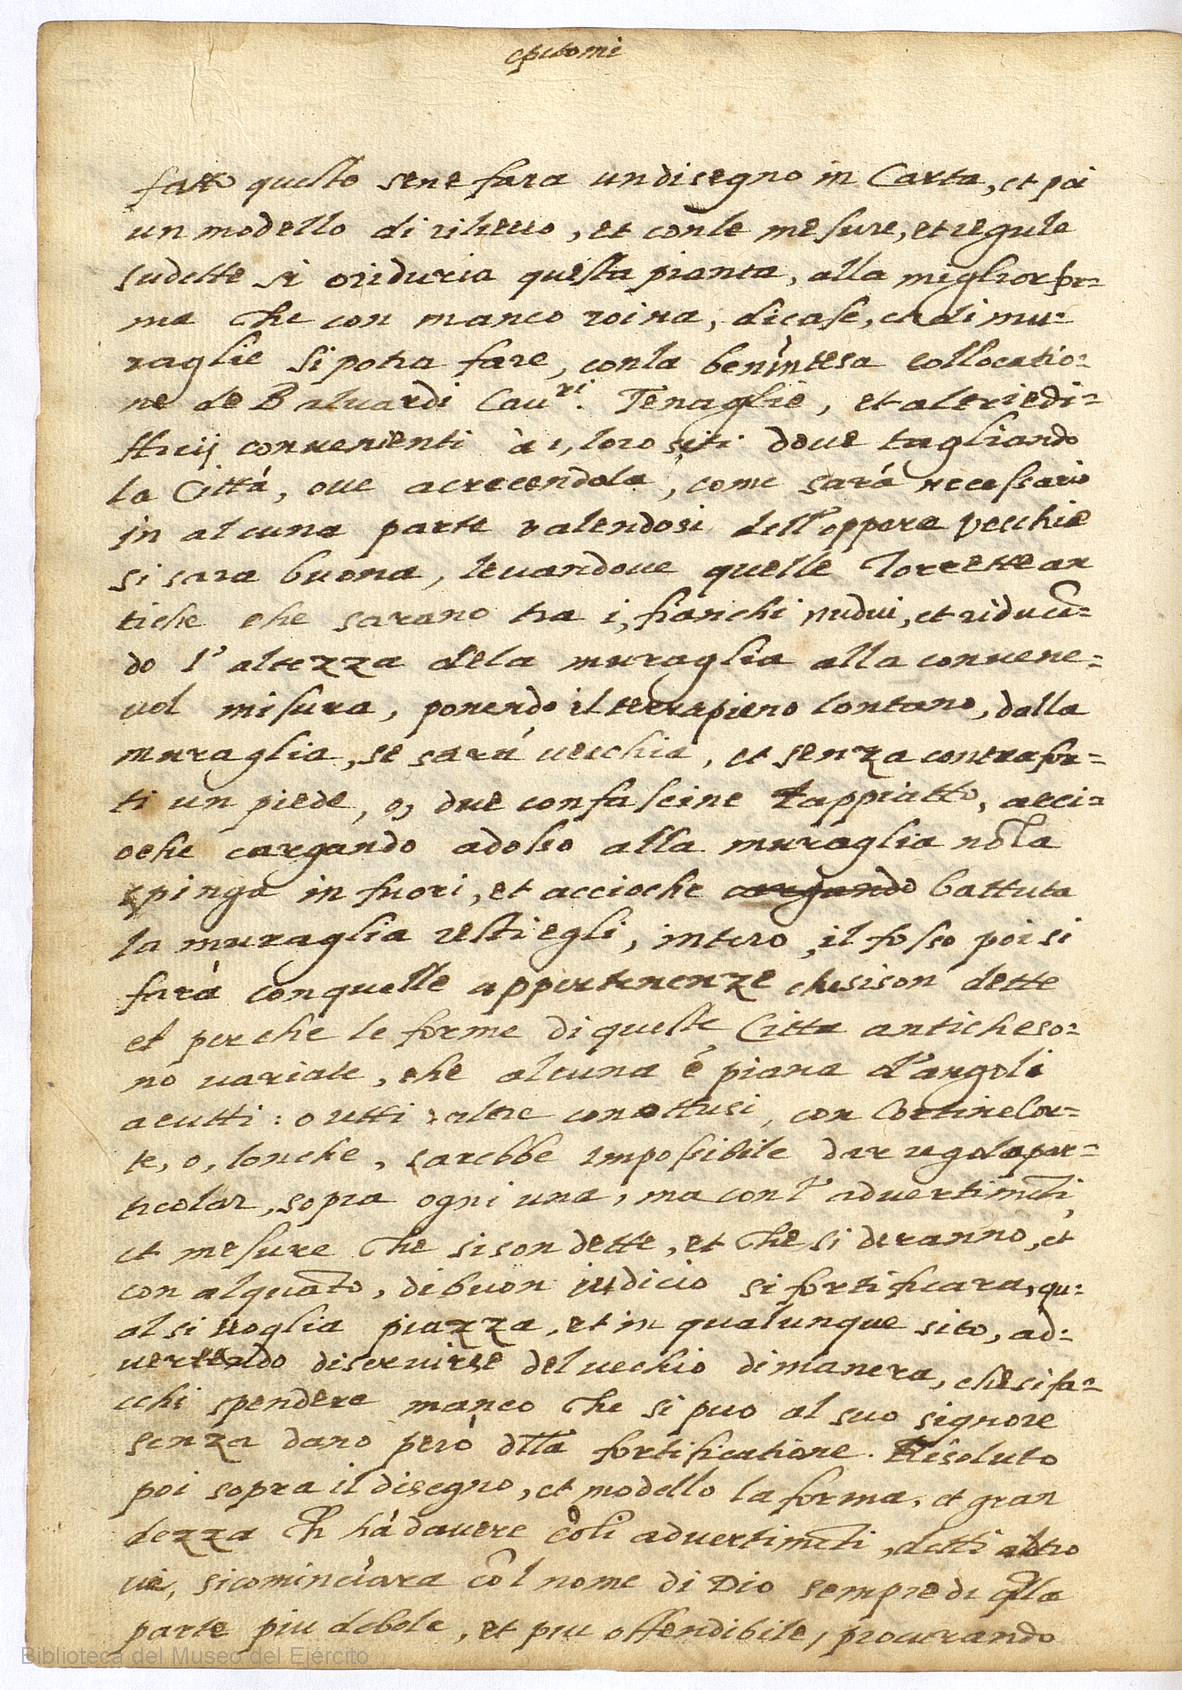 epitomi
fatto questo sene fara un disegno in Carta, et poi
un modello di rilievo, et con le mesure, et regule
sudette si riduria questa pianta, alla miglior for-
ma che con manco roina, di case, et di mu-
raglie si potra fare, con la ben intesa collocatio-
ne de Baluardi Cau.ri Tenaglie, et altri edi-
fficij convenienti à i, loro siti dove tagliando
la Città, ove acrecendola, come sarà necessario
in alcuna parte valendosi dell'oppera vecchie
si sara buona, levandove quelle Torrette an
tiche che sarano tra i, fianchi nudui, et riducẽ-
do l'altezza dela muraglia alla convene-
vol misura, ponendo il terrapieno lontano, dalla
muraglia, se sarà vecchia, et senza contrafor-
ti un piede, o, due con fascine tappiatto, acci-
oche cargando adosso alla muraglia nõ la
spinga in fuori, et accioche cargando battuta
la muraglia resti egli, intero, il fosso poi si
farà con quelle appertenenze che si son dette
et perche le forme di queste Citta antiche so-
no variate, che alcuna é piana d'angoli
acutti: o retti altre con ottusi, con Cortine Cor-
te, o, lonche, sarebbe impossibile dar regola par-
ticolar, sopra ogni una, ma con l'advertimẽti,
et mesure che si son dette, et che si deranno, et
con alquãto, di buon iudicio si fortificara, qu-
al si voglia piazza, et in qualunque sito, ad-
vertendo di servirse del vechio di manera, che si fa-
cchi spendere manco che si puo al suo signore
senza dano però dlla fortificatione. Risoluto
poi sopra il disegno, et modello la forma, et gran
dezza ch hà davere cõli advertimẽti, detti altro
ve, si cominciara cõl nome di Dio sempre di qlla
parte piu debole, et piu offendibile, procurando
Biblioteca del Museo del Ejército